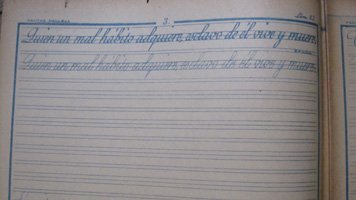 3.
Quien un mal hábito adquiere, esclavo de él vive y muere.
Quien un mal hábito adquiere, esclavo de él vive y muere.